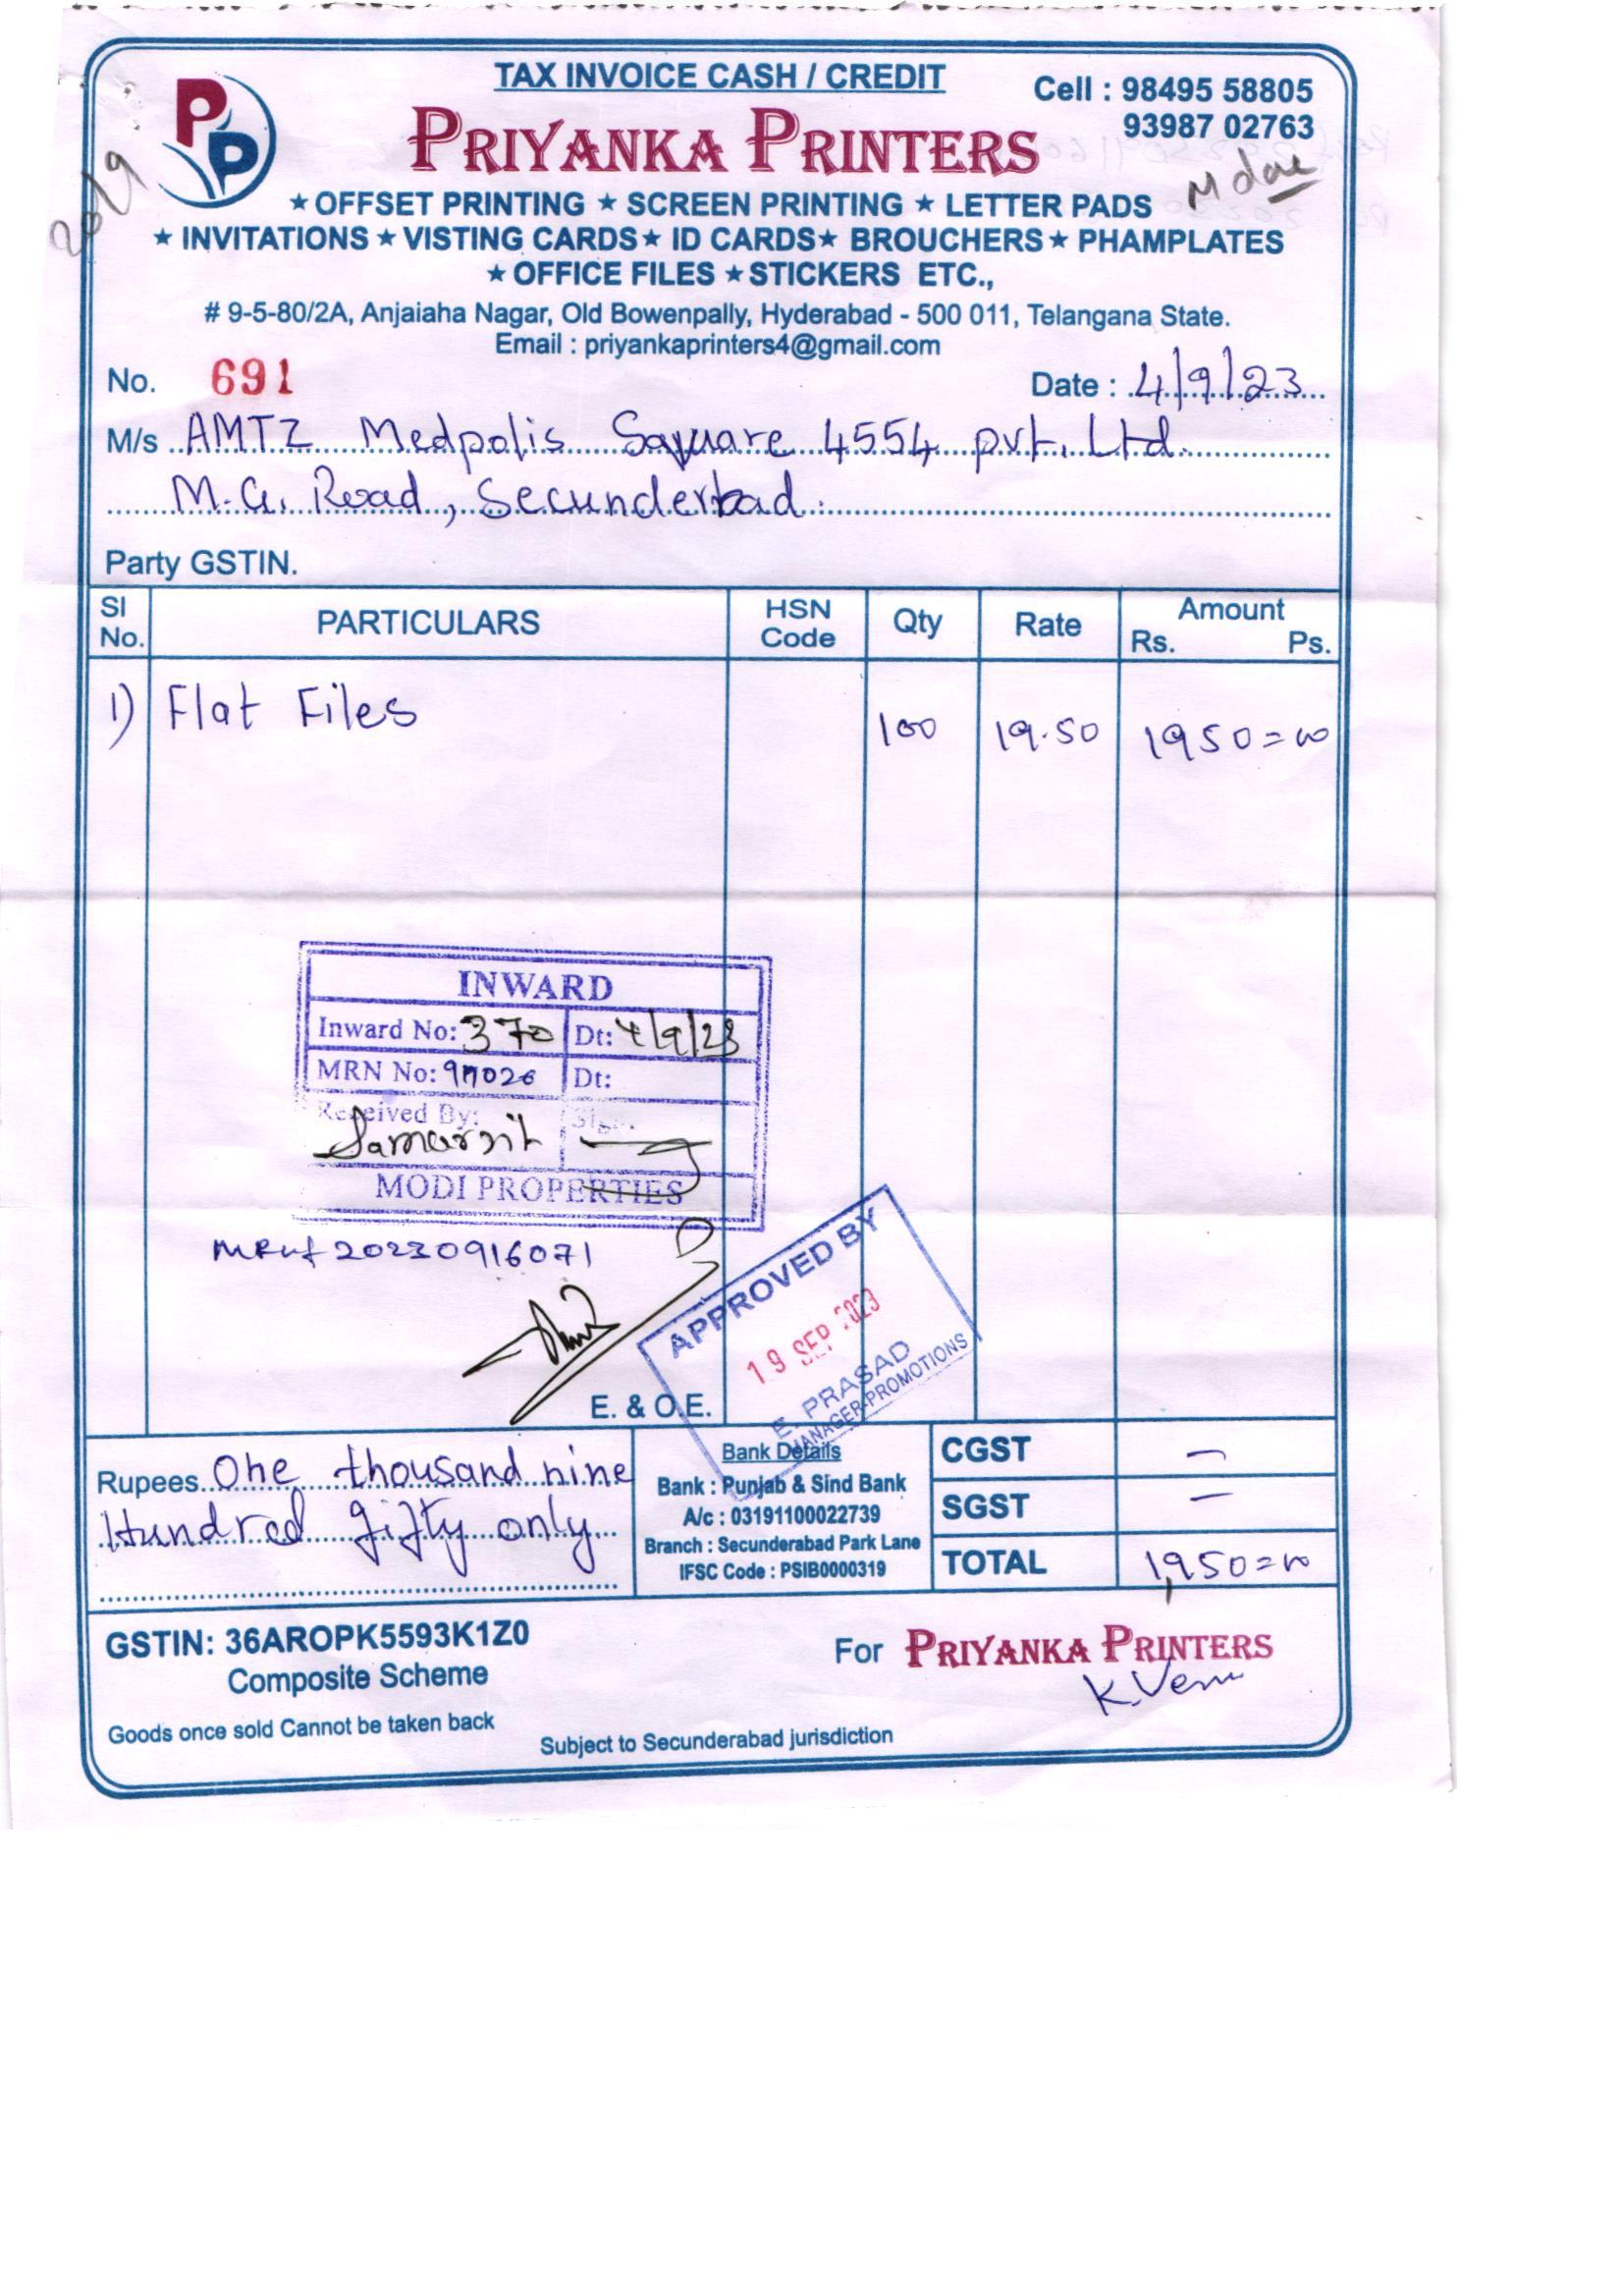 TAX INVOICE CASH / CREDIT
Cell : 98495 58805
93987 02763
PP
PRIYANKA PRINTERS
20/9
M done
★ OFFSET PRINTING ★ SCREEN PRINTING ★ LETTER PADS
★ INVITATIONS ★ VISTING CARDS ★ ID CARDS ★ BROUCHERS ★ PHAMPLATES
★ OFFICE FILES ★ STICKERS ETC.,
# 9-5-80/2A, Anjaiaha Nagar, Old Bowenpally, Hyderabad - 500 011, Telangana State.
Email : priyankaprinters4@gmail.com
No. 691 Date : 4/9/23
M/s AMTZ Medpolis Square 4554 pvt. Ltd.
M.G. Road, Secunderbad.
Party GSTIN.
Sl No. PARTICULARS HSN Code Qty Rate Amount Rs. Ps.
1) Flat Files 100 19.50 1950=00
INWARD
Inward No: 370 Dt: 4/9/23
MRN No: Dt:
Received By: Sign.
MODI PROPERTIES
20230916071
APPROVED BY
19 SEP 2023
E. PRASAD
MANAGER-PROMOTIONS
E. & O.E.
Rupees One thousand nine
Hundred fifty only
Bank Details
Bank : Punjab & Sind Bank
A/c : 03191100022739
Branch : Secunderabad Park Lane
IFSC Code : PSIB0000319
CGST –
SGST –
TOTAL 1,950=00
GSTIN: 36AROPK5593K1Z0
Composite Scheme
For PRIYANKA PRINTERS
K.Venu
Goods once sold Cannot be taken back
Subject to Secunderabad jurisdiction